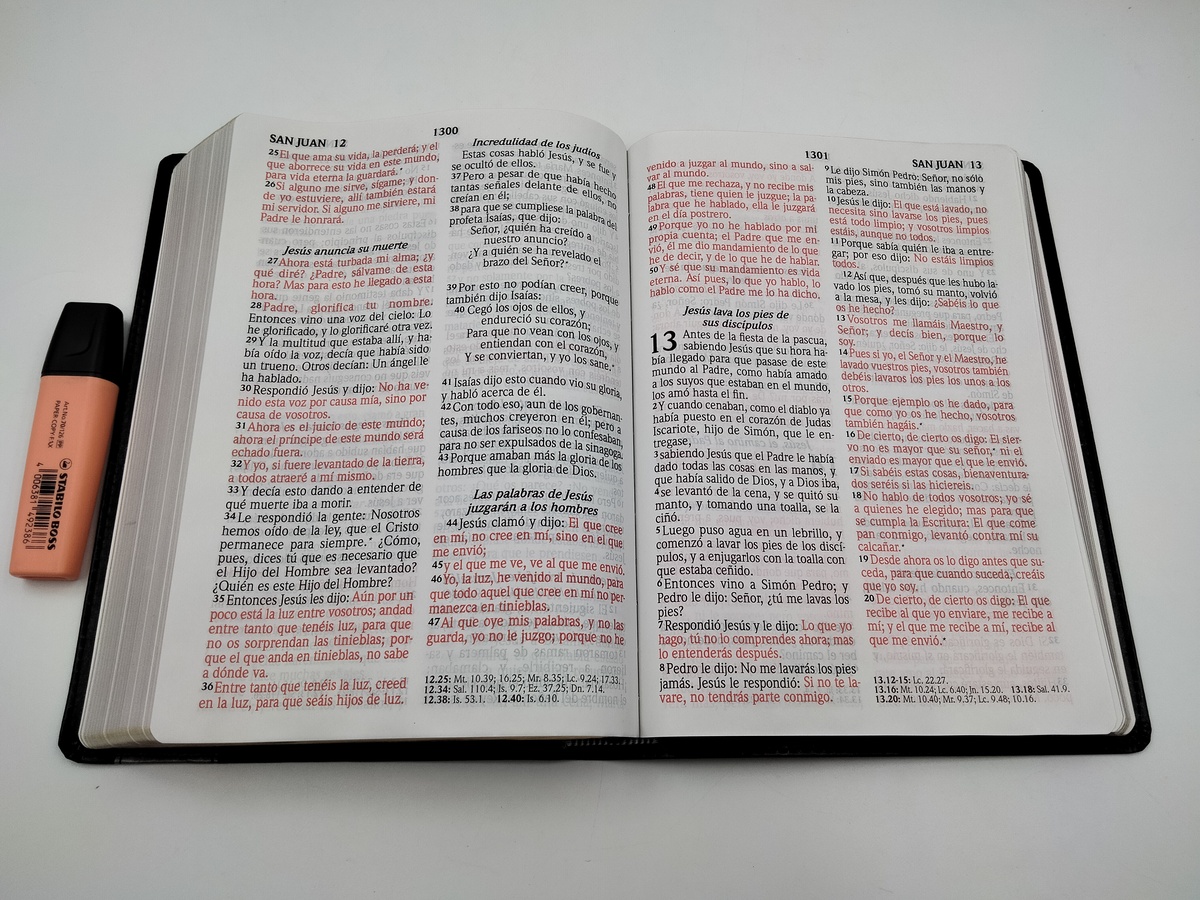 SAN JUAN 12
1300
25 El que ama su vida, la perderá; y el
que aborrece su vida en este mundo,
para vida eterna la guardará.*
26 Si alguno me sirve, sígame; y don-
de yo estuviere, allí también estará
mi servidor. Si alguno me sirviere, mi
Padre le honrará.
Jesús anuncia su muerte
27 Ahora está turbada mi alma; ¿y
qué diré? ¿Padre, sálvame de esta
hora? Mas para esto he llegado a esta
hora.
28 Padre, glorifica tu nombre.
Entonces vino una voz del cielo: Lo
he glorificado, y lo glorificaré otra vez.
29 Y la multitud que estaba allí, y ha-
bía oído la voz, decía que había sido
un trueno. Otros decían: Un ángel le
ha hablado.
30 Respondió Jesús y dijo: No ha ve-
nido esta voz por causa mía, sino por
causa de vosotros.
31 Ahora es el juicio de este mundo;
ahora el príncipe de este mundo será
echado fuera.
32 Y yo, si fuere levantado de la tierra,
a todos atraeré a mí mismo.
33 Y decía esto dando a entender de
qué muerte iba a morir.
34 Le respondió la gente: Nosotros
hemos oído de la ley, que el Cristo
permanece para siempre.* ¿Cómo,
pues, dices tú que es necesario que
el Hijo del Hombre sea levantado?
¿Quién es este Hijo del Hombre?
35 Entonces Jesús les dijo: Aún por un
poco está la luz entre vosotros; andad
entre tanto que tenéis luz, para que
no os sorprendan las tinieblas; por-
que el que anda en tinieblas, no sabe
a dónde va.
36 Entre tanto que tenéis la luz, creed
en la luz, para que seáis hijos de luz.
Incredulidad de los judíos
Estas cosas habló Jesús, y se fue y
se ocultó de ellos.
37 Pero a pesar de que había hecho
tantas señales delante de ellos, no
creían en él;
38 para que se cumpliese la palabra del
profeta Isaías, que dijo:
Señor, ¿quién ha creído a
nuestro anuncio?
¿Y a quién se ha revelado el
brazo del Señor?*
39 Por esto no podían creer, porque
también dijo Isaías:
40 Cegó los ojos de ellos, y
endureció su corazón;
Para que no vean con los ojos, y
entiendan con el corazón,
Y se conviertan, y yo los sane.*
41 Isaías dijo esto cuando vio su gloria,
y habló acerca de él.
42 Con todo eso, aun de los gobernan-
tes, muchos creyeron en él; pero a
causa de los fariseos no lo confesaban,
para no ser expulsados de la sinagoga.
43 Porque amaban más la gloria de los
hombres que la gloria de Dios.
Las palabras de Jesús
juzgarán a los hombres
44 Jesús clamó y dijo: El que cree
en mí, no cree en mí, sino en el que
me envió;
45 y el que me ve, ve al que me envió.
46 Yo, la luz, he venido al mundo, para
que todo aquel que cree en mí no per-
manezca en tinieblas.
47 Al que oye mis palabras, y no las
guarda, yo no le juzgo; porque no he
12.25: Mt. 10.39; 16.25; Mr. 8.35; Lc. 9.24; 17.33.
12.34: Sal. 110.4; Is. 9.7; Ez. 37.25; Dn. 7.14.
12.38: Is. 53.1. 12.40: Is. 6.10.
1301
SAN JUAN 13
venido a juzgar al mundo, sino a sal-
var al mundo.
48 El que me rechaza, y no recibe mis
palabras, tiene quien le juzgue; la pa-
labra que he hablado, ella le juzgará
en el día postrero.
49 Porque yo no he hablado por mi
propia cuenta; el Padre que me en-
vió, él me dio mandamiento de lo que
he de decir, y de lo que he de hablar.
50 Y sé que su mandamiento es vida
eterna. Así pues, lo que yo hablo, lo
hablo como el Padre me lo ha dicho.
Jesús lava los pies de
sus discípulos
13 Antes de la fiesta de la pascua,
sabiendo Jesús que su hora ha-
bía llegado para que pasase de este
mundo al Padre, como había amado
a los suyos que estaban en el mundo,
los amó hasta el fin.
2 Y cuando cenaban, como el diablo ya
había puesto en el corazón de Judas
Iscariote, hijo de Simón, que le en-
tregase,
3 sabiendo Jesús que el Padre le había
dado todas las cosas en las manos, y
que había salido de Dios, y a Dios iba,
4 se levantó de la cena, y se quitó su
manto, y tomando una toalla, se la
ciñó.
5 Luego puso agua en un lebrillo, y
comenzó a lavar los pies de los discí-
pulos, y a enjugarlos con la toalla con
que estaba ceñido.
6 Entonces vino a Simón Pedro; y
Pedro le dijo: Señor, ¿tú me lavas los
pies?
7 Respondió Jesús y le dijo: Lo que yo
hago, tú no lo comprendes ahora; mas
lo entenderás después.
8 Pedro le dijo: No me lavarás los pies
jamás. Jesús le respondió: Si no te la-
vare, no tendrás parte conmigo.
9 Le dijo Simón Pedro: Señor, no sólo
mis pies, sino también las manos y
la cabeza.
10 Jesús le dijo: El que está lavado, no
necesita sino lavarse los pies, pues
está todo limpio; y vosotros limpios
estáis, aunque no todos.
11 Porque sabía quién le iba a entre-
gar; por eso dijo: No estáis limpios
todos.
12 Así que, después que les hubo la-
vado los pies, tomó su manto, volvió
a la mesa, y les dijo: ¿Sabéis lo que
os he hecho?
13 Vosotros me llamáis Maestro, y
Señor; y decís bien, porque lo
soy.
14 Pues si yo, el Señor y el Maestro, he
lavado vuestros pies, vosotros también
debéis lavaros los pies los unos a los
otros.
15 Porque ejemplo os he dado, para
que como yo os he hecho, vosotros
también hagáis.*
16 De cierto, de cierto os digo: El sier-
vo no es mayor que su señor,* ni el
enviado es mayor que el que le envió.
17 Si sabéis estas cosas, bienaventura-
dos seréis si las hiciereis.
18 No hablo de todos vosotros; yo sé
a quienes he elegido; mas para que
se cumpla la Escritura: El que come
pan conmigo, levantó contra mí su
calcañar.*
19 Desde ahora os lo digo antes que su-
ceda, para que cuando suceda, creáis
que yo soy.
20 De cierto, de cierto os digo: El que
recibe al que yo enviare, me recibe a
mí; y el que me recibe a mí, recibe al
que me envió.*
13.12-15: Lc. 22.27.
13.16: Mt. 10.24; Lc. 6.40; Jn. 15.20. 13.18: Sal. 41.9.
13.20: Mt. 10.40; Mr. 9.37; Lc. 9.48; 10.16.
STABILO BOSS
Art.No. 70/126
PAPER-COPY-FAX
4 006381 492386